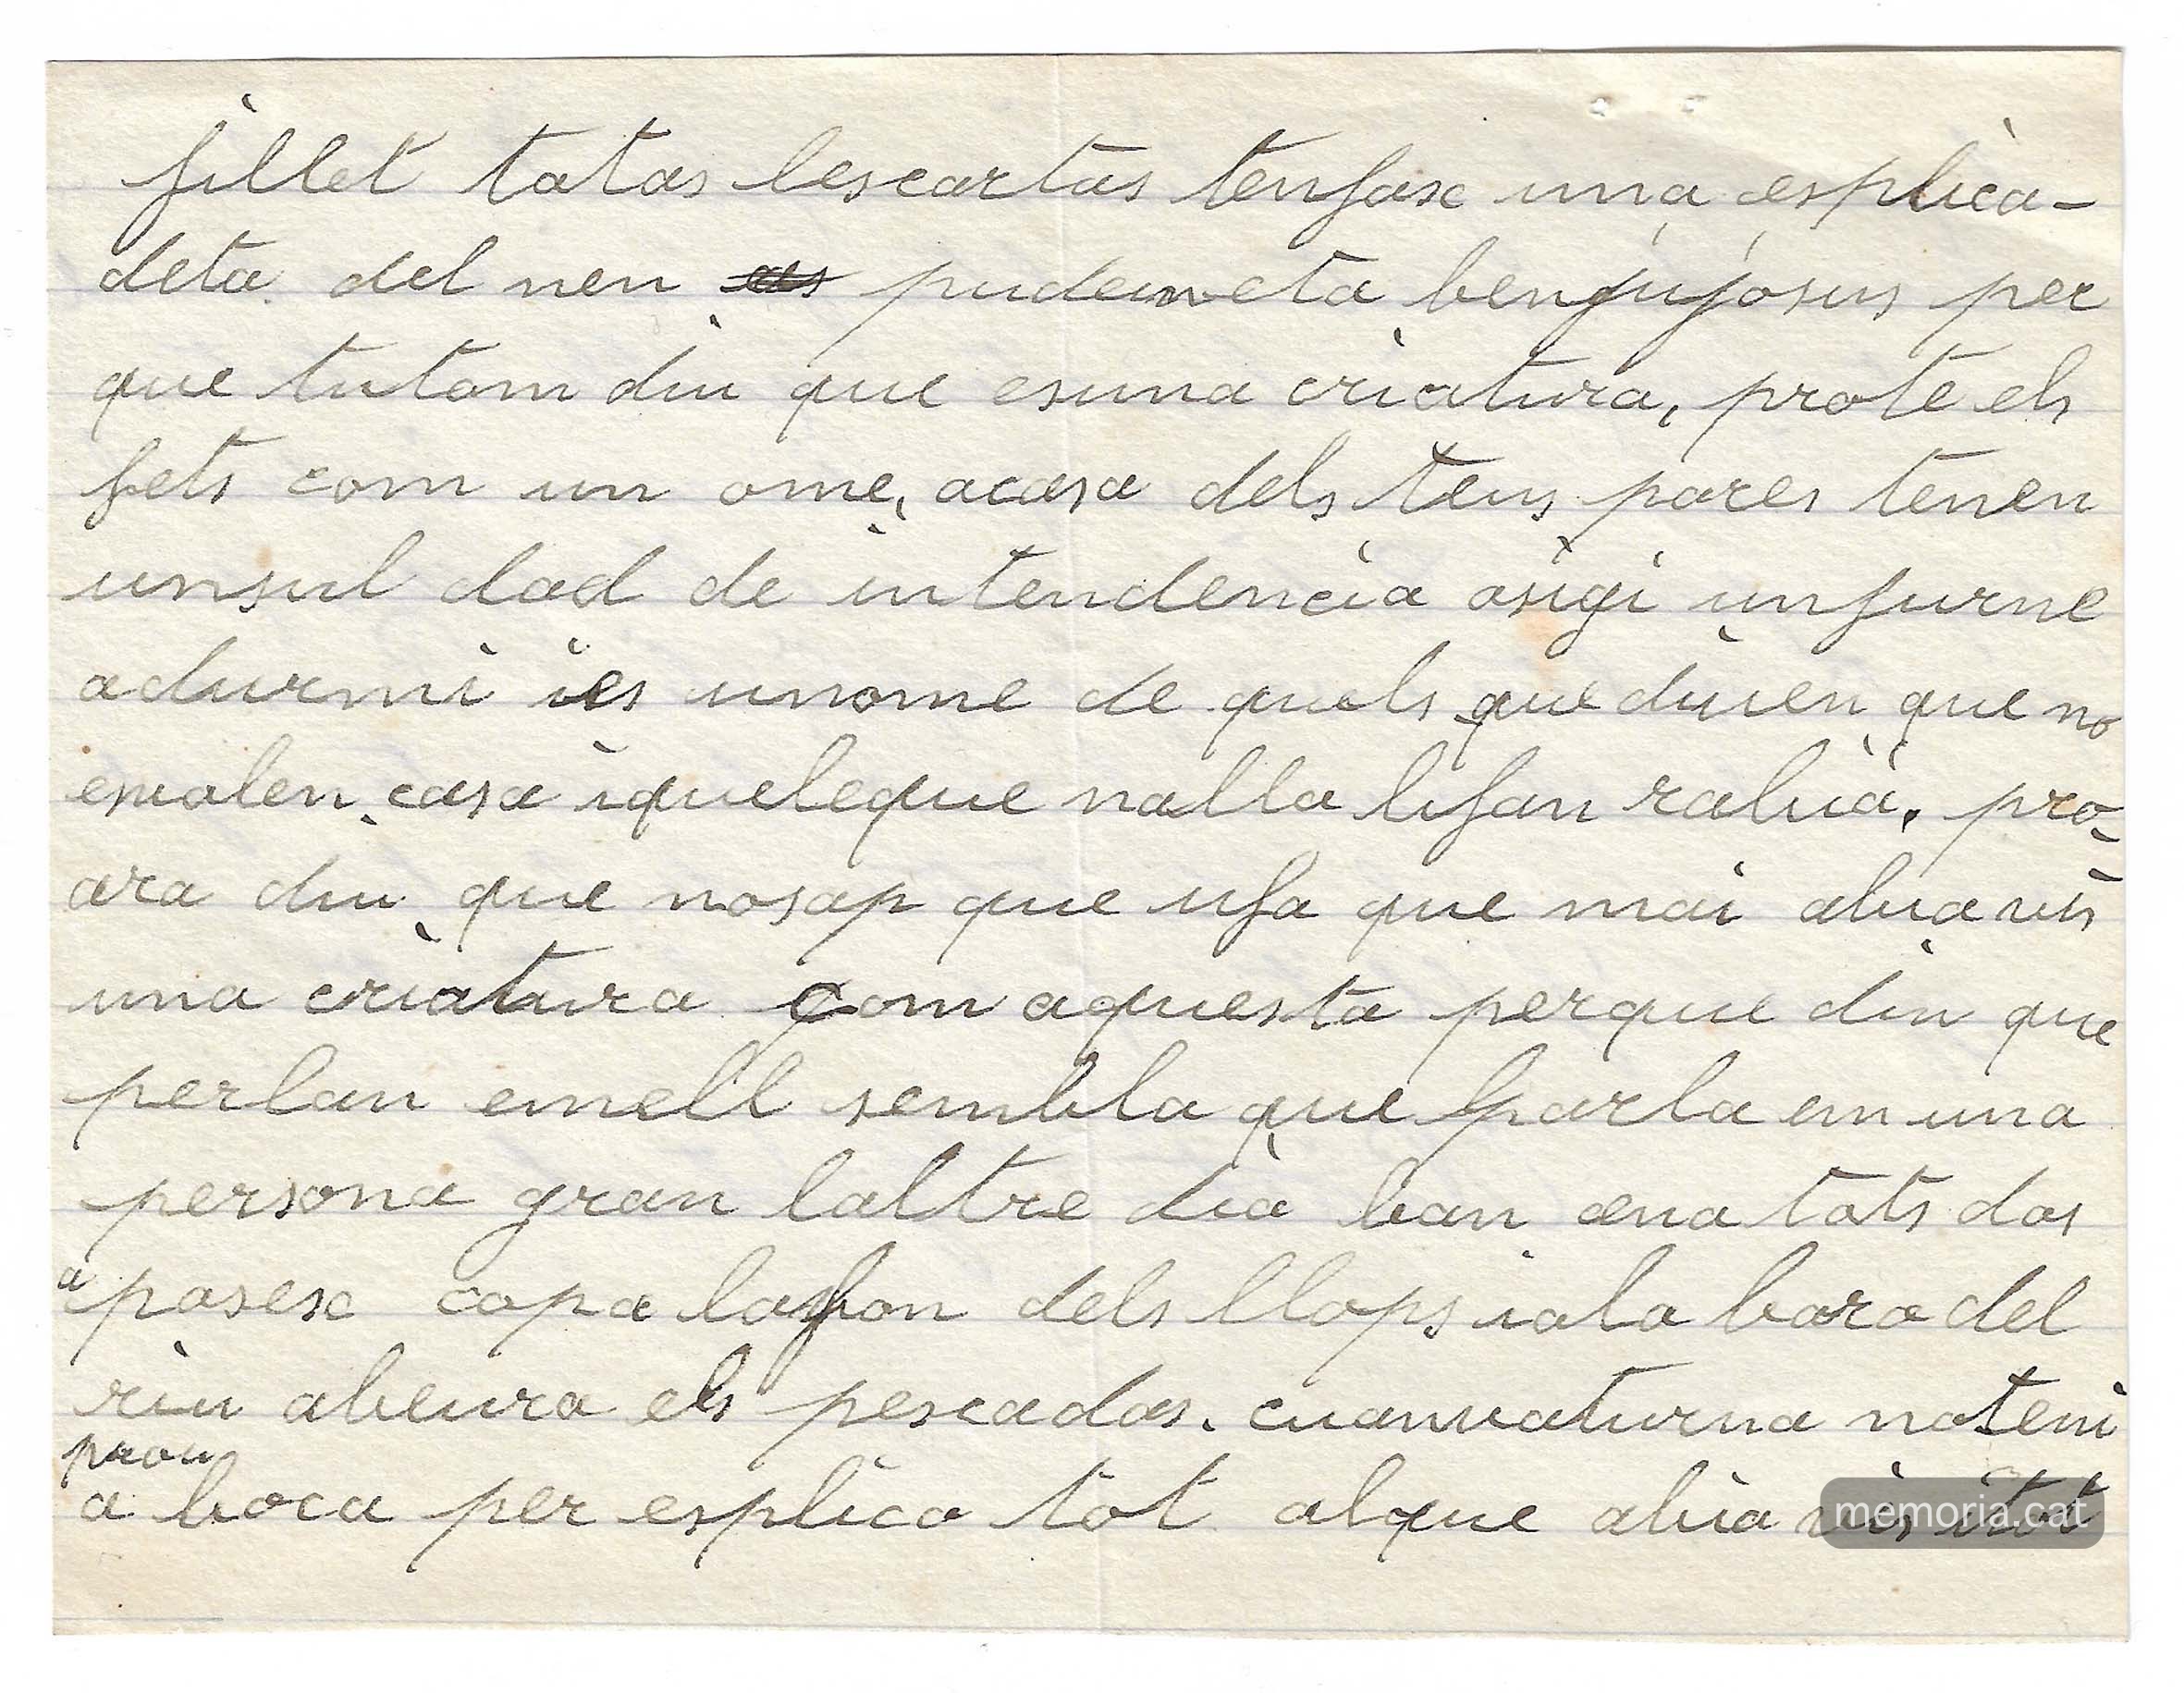 fillet totas lescartas tenfasc una esplica-
deta del nen pudem eta benjujosus per
que tutom diu que esuna criatura, prote els
fets com un ome, acasa dels teus pares tenen
unsul dad de intendencia osigi unfurne
adurmi ies unome de quels que diuen que no
esvalen casa iqueleque nalla lifan rabia. pro
ara diu que nosap que ufa que mai abia vis
una criatura com aquesta perque diu que
perlan emell sembla que parla em una
persona gran laltre dia ban ana tots dos
a pasesc capa lafon dels llops iala bora del
riu abeura els pescados. cuanvaturna noteni
prou
a boca per esplica tot alque abia vis itot
memoria.cat